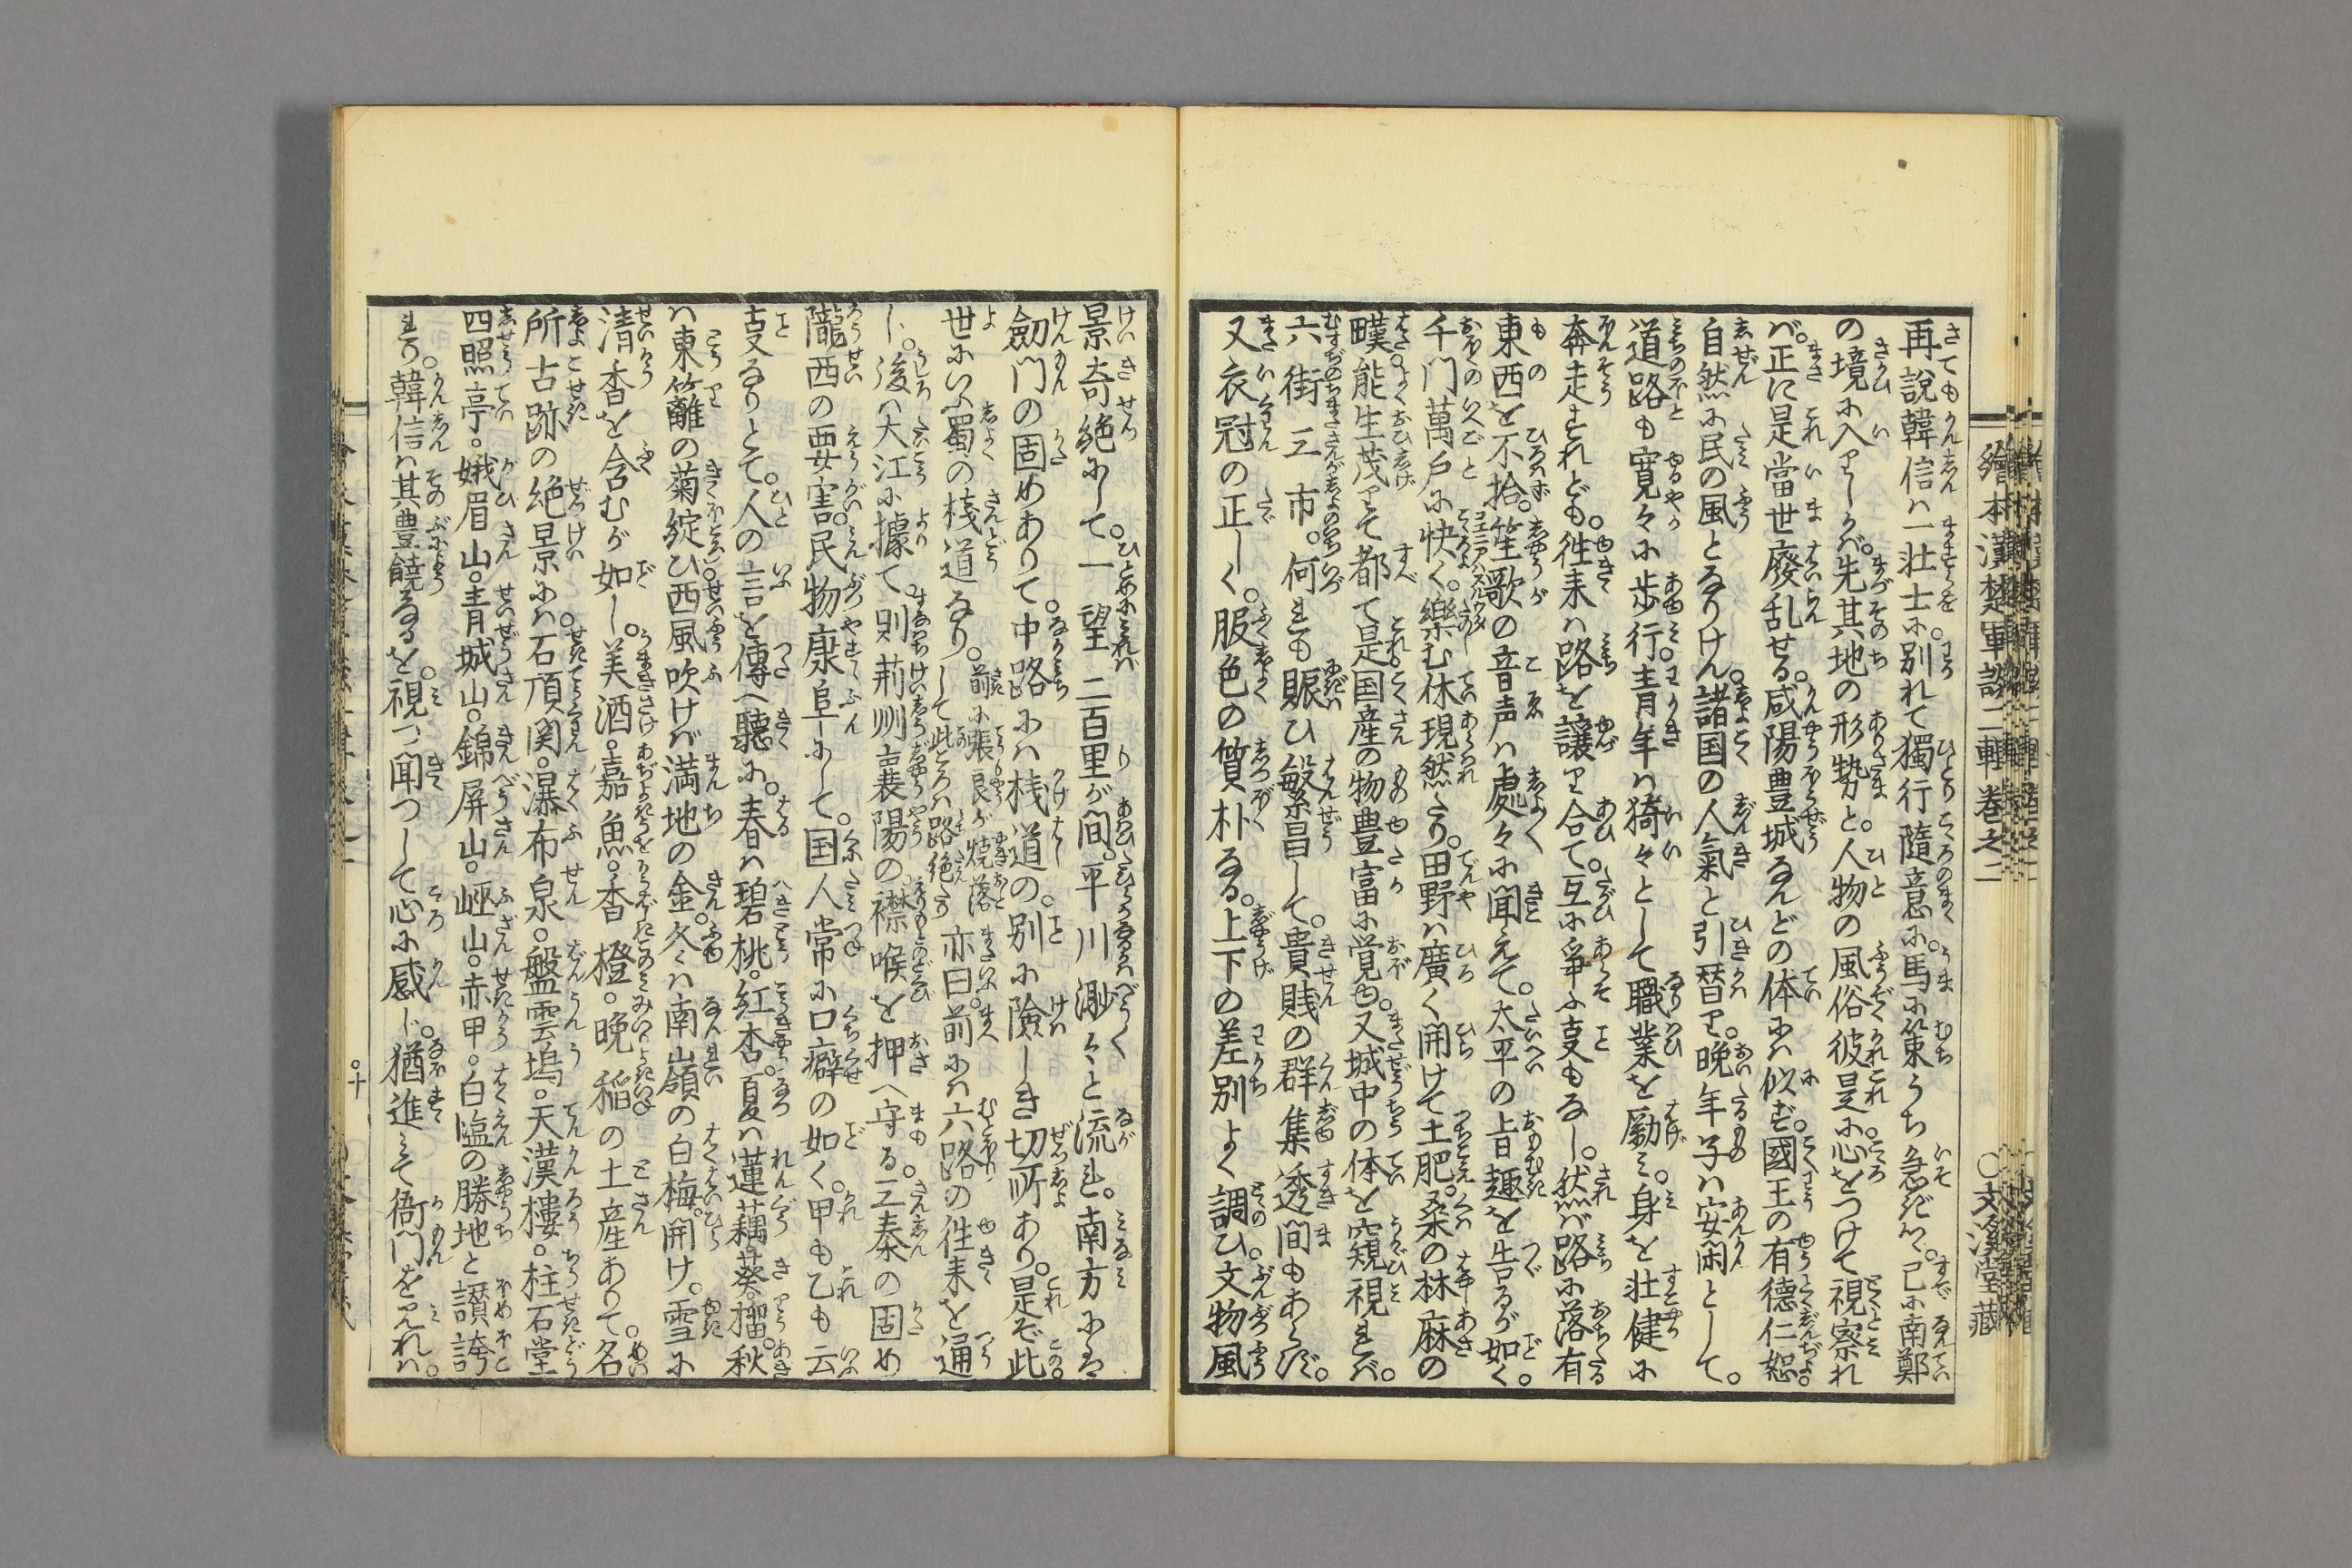 繪本漢楚軍談二輯卷之二 〇文溪堂藏
再說韓信ハ一壮士に別れて。獨行隨意に。馬に策うち急ぎつゝ。已に南鄭
の境に入りしかバ。先其地の形勢と。人物の風俗彼是に。心をつけて視察れ
バ。正に是當世廢乱せる。咸陽豊城なんどの体にハ似ず。國王の有德仁恕。
自然に民の風となりけん。諸国の人氣と引替り。晩年子ハ安閑として。
道路も寛々に歩行。青年ハ猗々として職業を勵ミ。身を壮健に
奔走すれども。徃来ハ路を讓り合て。互に爭ふ叓もなし。然バ路に落有
東西を不拾。笙歌の音声ハ處々に聞えて。太平の旨趣を告るが如く。
千門萬戸に快く。樂む休現然たり。田野ハ廣く開けて土肥。桑の林麻の
疄能生茂りて都て是国産の物豊富に覚ゆ。又城中の体を窺視れバ。
六街三市。何れも賑ひ繁昌して。貴賎の群集透間もあらず。
又衣冠の正しく。服色の質朴なる。上下の差別よく調ひ。文物風
景奇絶にして。一望二百里が間。平川渺々と流れ。南方にハ
劔門の固めありて。中路にハ桟道の。別に險しき切所あり。是ぞ此
世にいふ蜀の桟道なり。前に張良が焼落して此ころハ路絶たり亦曰。前にハ六路の徃来を通
し。後ハ大江に據て。則荊州襄陽の。襟喉を押へ守る。三秦の固め
隴西の要害。民物康阜にして。国人常に口癖の如く。甲も乙も云
叓なりとて。人の言を傳へ聽に。春ハ碧桃。紅杏。夏ハ蓮藕葵榴。秋
ハ東籬の菊綻ひ西風吹けバ満地の金。冬ハ南嶺の白梅開け。雪に
清香を含むが如し。美酒。嘉魚。香橙。晩稲の土産ありて。名
所古跡の絶景にハ。石頂関。瀑布泉。盤雲塢。天漢樓。柱石堂
四照亭。娥眉山。青城山。錦屏山。巫山。赤甲。白塩の勝地と讃誇
れり。韓信ハ其豊饒なるを。視つ聞つして心に感じ。猶進ミて衙門を見れハ。
〇十